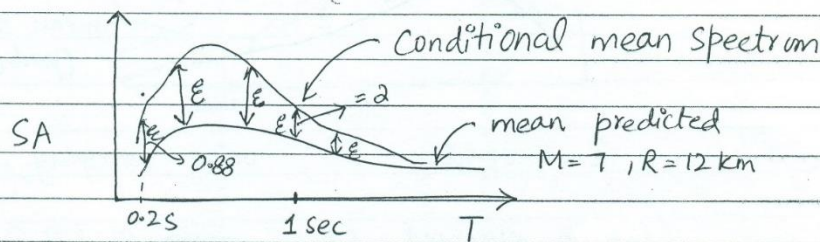 Conditional mean spectrum
ε
ε
= 2
ε
SA
ε
0.88
ε
mean predicted
M=7, R=12 km
0.2s
1 sec
T